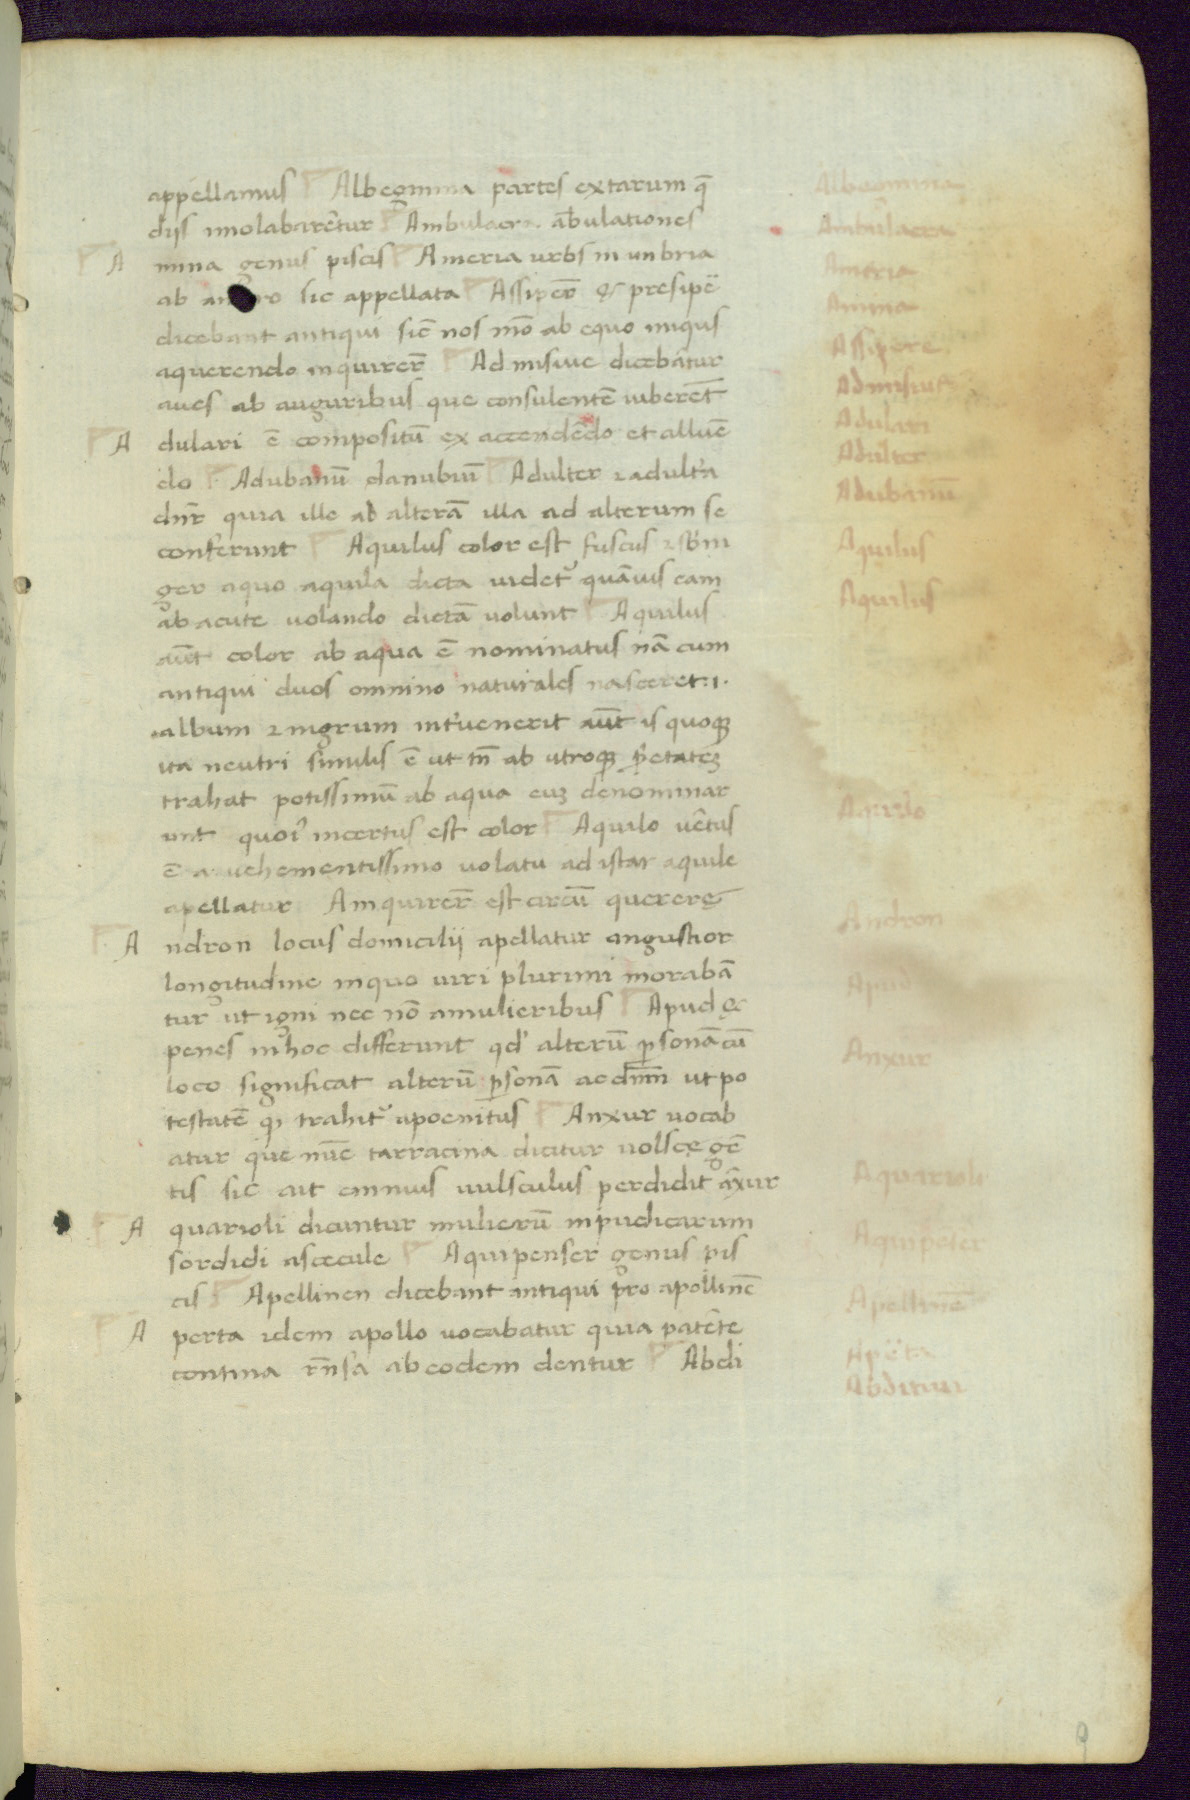 appellamus Albegmina partes extarum q̄
dijs imolabarētur Ambulacra ābulationes
A mina genus piscis Ameria urbs in unbria
ab am ro sic appellata Assiper̄ & presipē
dicebant antiqui sic̄ nos mō ab equo iniqus
aquerendo inquirer̄ Admisiue dicebātur
aues ab auguribus que consulentē iuberet̄
A dulari ē compositū ex accendēdo et alluē
do Adubanū danubiū Adulter ⁊ adult'a
dnr̄ quia ille ad alterā illa ad alterum se
conferunt Aquilus color est fuscus ⁊ sb'ni
ger aquo aquila dicta uidet᷑ quāuis eam
ab acute uolando dictā uolunt Aquilus
aūt color ab aqua ē nominatus nā cum
antiqui duos omnino naturales nasceret .i.
album ⁊ nigrum int'uenerit aūt is quoqꝫ
ita neutri similis ē ut tn̄ ab utroqꝫ p'etatēꝫ
trahat potissimū ab aqua euꝫ denominar
unt quoi᷑ incertus est color Aquilo uētus
ē a uehementissimo uolatu ad istar aquile
apellatur Amquirer̄ est circū querere
A ndron locus domicilij apellatur angustior
longitudine inquo uiri plurimi morabā
tur ut igni nec nō amulieribus Apud &
penes in hoc differunt qd' alterū ꝑsonā cū
loco significat alterū ꝑsonā ac dn̄m ut po
testatē qꝫ trahit᷑ apoenitus Anxur uocab
atur que nūc tarracina dicitur uolsce gē
tis sic ait ennius uulsculus perdidit āxur
A quarioli dicuntur mulierū inpudicarum
sordidi ascecule Aquipenser genus pis
cis Apellinen dicebant antiqui pro apollinē
A perta idem apollo uocabatur quia patēte
contina rn̄sa ab eodem dentur Abdi
Albegmina
Ambulacra
Ameria
Amina
Assipere
Admisiue
Adulari
Adulter
Adubanū
Aquilus
Aquilus
Aquilo
Andron
Apud
Anxur
Aquarioli
Aquipēser
Apellinē
Apēta
Abditiui
9